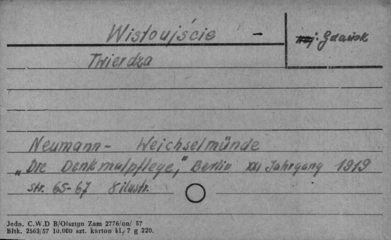 Wisłoujście -
woj: Gdańsk
Twierdza
Neumann - Weichselmünde
"Die Denkmalpflege," Berlin XXI Jahrgang 1919
str. 65-67 8 ilustr.
Jedn. C.W.D B/Olsztyn Zam 2776/on/ 57
Bltk. 2563/57 10.000 szt. karton kl,/7 g 220.